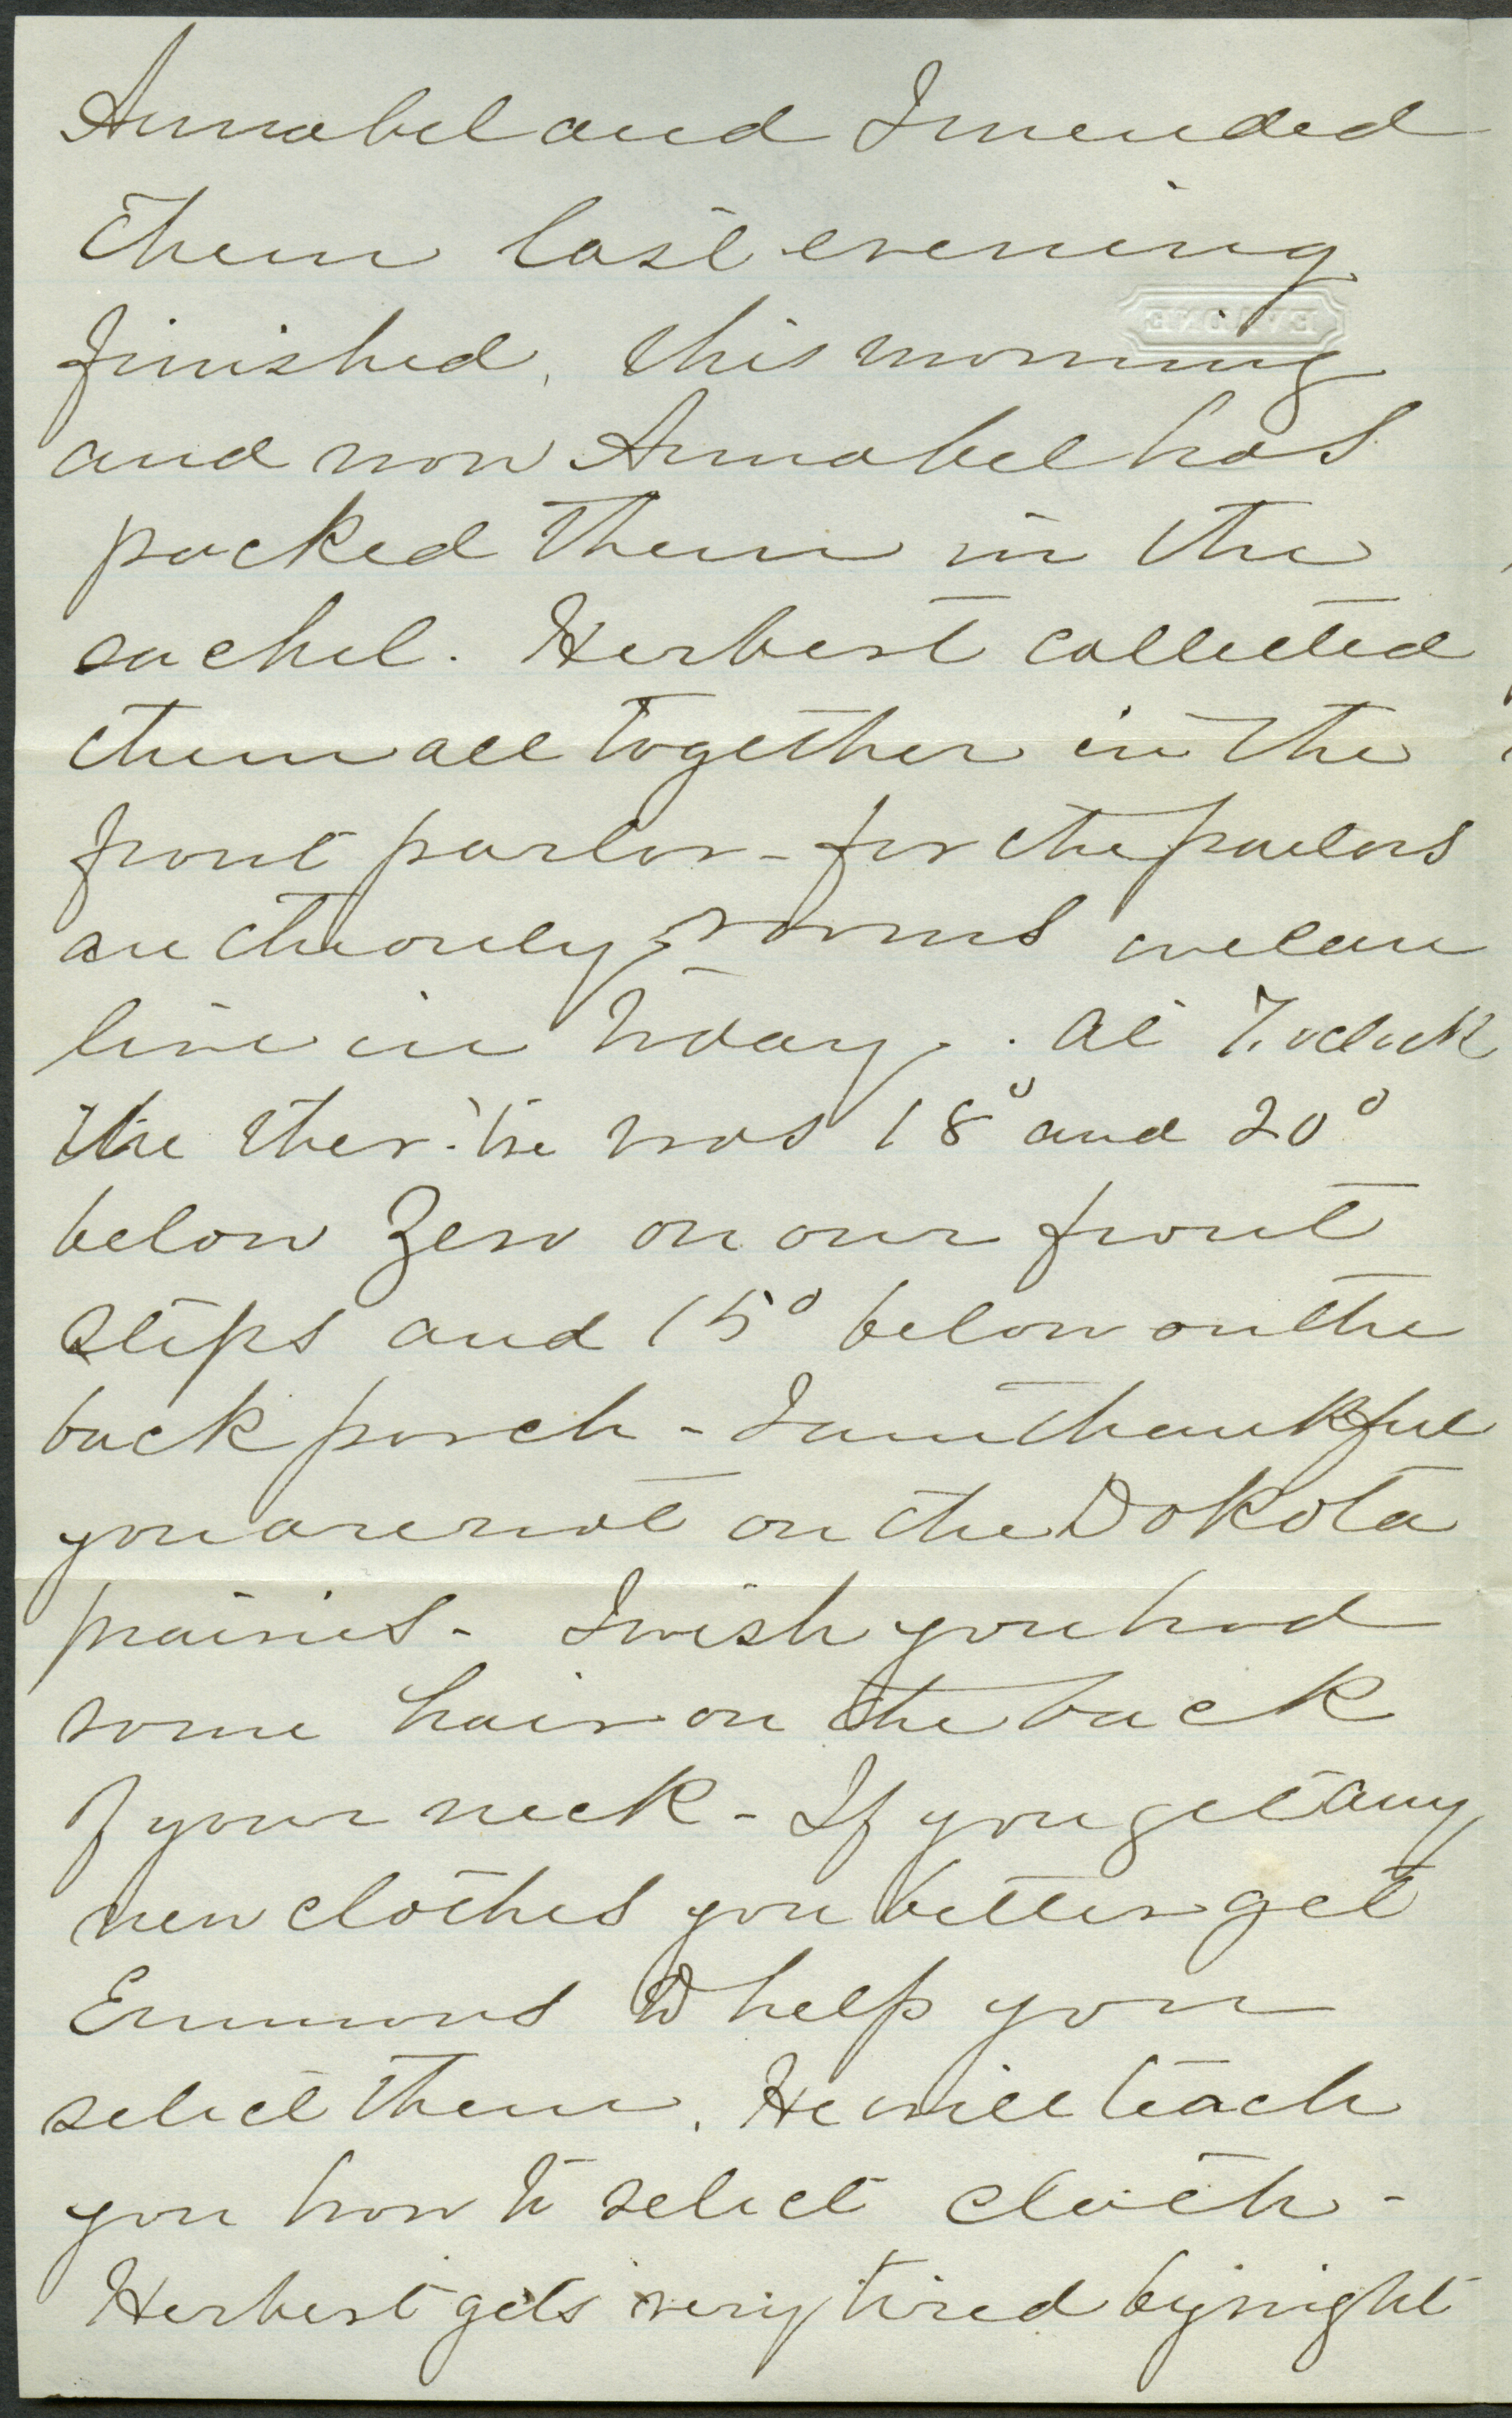 Annabel and I mended
them last evening
finished, this morning
and now Annabel has
packed them in the
sachel. Herbert collected
them all together in the
front parlor - for the parlors
are the only rooms we can
live in today. At 7. oclock
the ther. tre was 18° and 20°
below Zero on our front
steps and 15° below on the
back porch - I am thankful
you are not on the Dakota
prairies - I wish you had
some hair on the back
of your neck - If you get any
new clothes you better get
Emmons to help you
select them. He will teach
you how to select cloth -
Herbert gets very tired by night